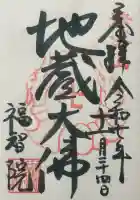 奉拝
令和七年
十一月二十四日
地蔵大佛
福智院